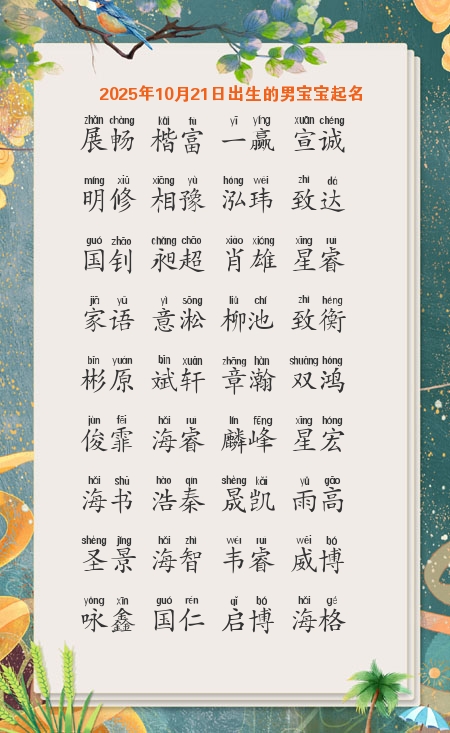 2025年10月21日出生的男宝宝起名
zhǎn chàng kǎi fù yī yíng xuān chéng
展畅 楷富 一赢 宣诚
míng xiū xiāng yù hóng wěi zhì dá
明修 相豫 泓玮 致达
guó zhāo chǎng chāo xiào xióng xīng ruì
国钊 昶超 肖雄 星睿
jiā yǔ yì sōng liǔ chí zhì héng
家语 意淞 柳池 致衡
bīn yuán bīn xuān zhāng hàn shuāng hóng
彬原 斌轩 章瀚 双鸿
jùn fēi hǎi ruì lín fēng xīng hóng
俊霏 海睿 麟峰 星宏
hǎi shū hào qín shèng kǎi yǔ gāo
海书 浩秦 晟凯 雨高
shèng jǐng hǎi zhì wéi ruì wēi bó
圣景 海智 韦睿 威博
yǒng xīn guó rén qǐ bó hǎi gé
咏鑫 国仁 启博 海格